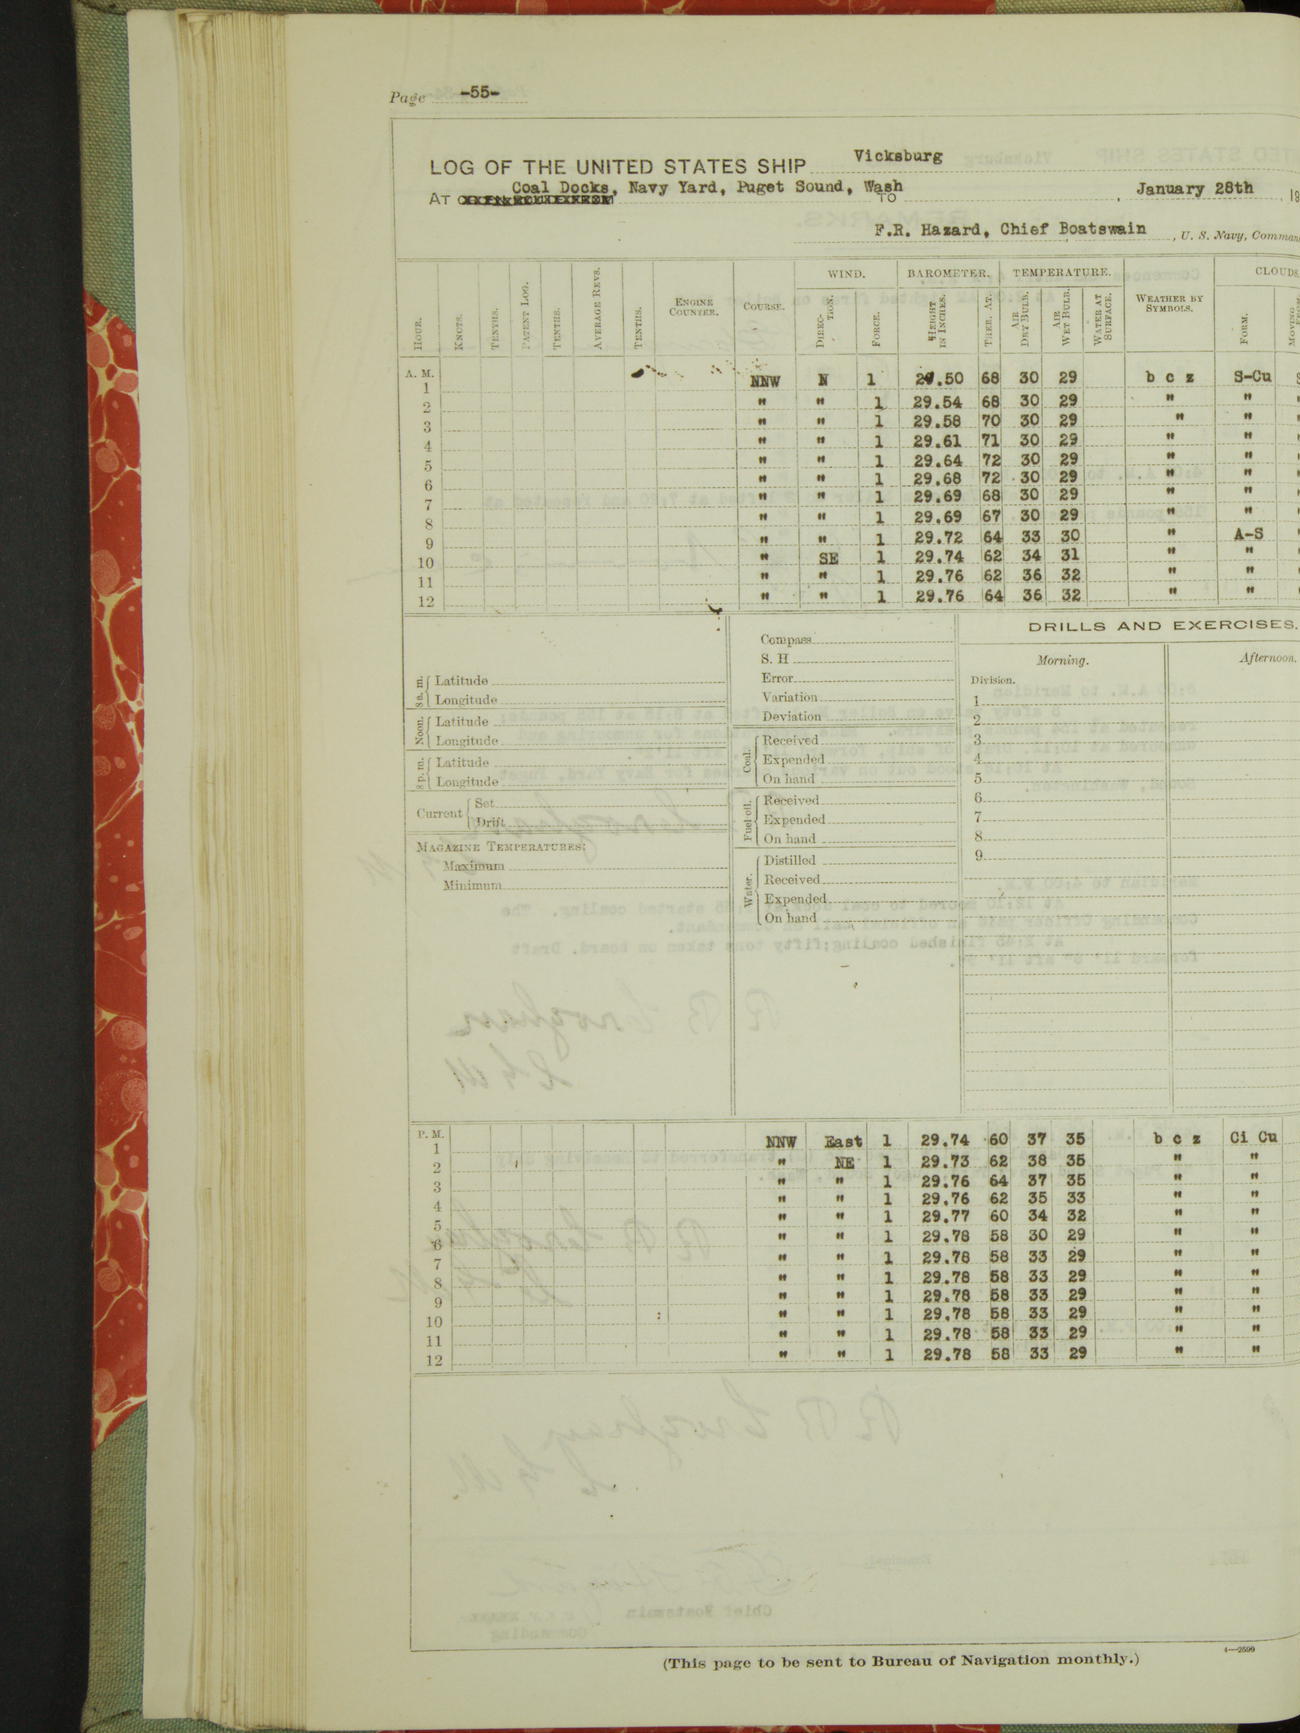 Page -55-
LOG OF THE UNITED STATES SHIP Vicksburg
AT Coal Docks, Navy Yard, Puget Sound, Wash TO , January 28th , 18
F.R. Hazard, Chief Boatswain , U. S. Navy, Comman
WIND. BAROMETER. TEMPERATURE. CLOUDS
HOUR. KNOTS. TENTHS. PATENT LOG. TENTHS. AVERAGE REVS. TENTHS. ENGINE COUNTER. COURSE. DIRECTION. FORCE. HEIGHT IN INCHES. THER. AT. AIR DRY BULB. AIR WET BULB. WATER AT SURFACE. WEATHER BY SYMBOLS. FORM. MOVING
A. M.
1 NNW N 1 29.50 68 30 29 b c z S-Cu S
2 " " 1 29.54 68 30 29 " "
3 " " 1 29.58 70 30 29 " "
4 " " 1 29.61 71 30 29 " "
5 " " 1 29.64 72 30 29 " "
6 " " 1 29.68 72 30 29 " "
7 " " 1 29.69 68 30 29 " "
8 " " 1 29.69 67 30 29 " "
9 " " 1 29.72 64 33 30 " A-S
10 " SE 1 29.74 62 34 31 " "
11 " " 1 29.76 62 36 32 " "
12 " " 1 29.76 64 36 32 " "
8 a. m. Latitude
Longitude
Noon. Latitude
Longitude
8 p. m. Latitude
Longitude
Current Set
Drift
MAGAZINE TEMPERATURES:
Maximum
Minimum
Compass
S. H
Error
Variation
Deviation
Coal. Received
Expended
On hand
Fuel oil. Received
Expended
On hand
Water. Distilled
Received
Expended
On hand
DRILLS AND EXERCISES.
Morning. Afternoon.
Division.
1
2
3
4
5
6
7
8
9
P. M.
1 NNW East 1 29.74 60 37 35 b c z Ci Cu
2 " NE 1 29.73 62 38 35 " "
3 " " 1 29.76 64 37 35 " "
4 " " 1 29.76 62 35 33 " "
5 " " 1 29.77 60 34 32 " "
6 " " 1 29.78 58 30 29 " "
7 " " 1 29.78 58 33 29 " "
8 " " 1 29.78 58 33 29 " "
9 " " 1 29.78 58 33 29 " "
10 " " 1 29.78 58 33 29 " "
11 " " 1 29.78 58 33 29 " "
12 " " 1 29.78 58 33 29 " "
4—2599
(This page to be sent to Bureau of Navigation monthly.)